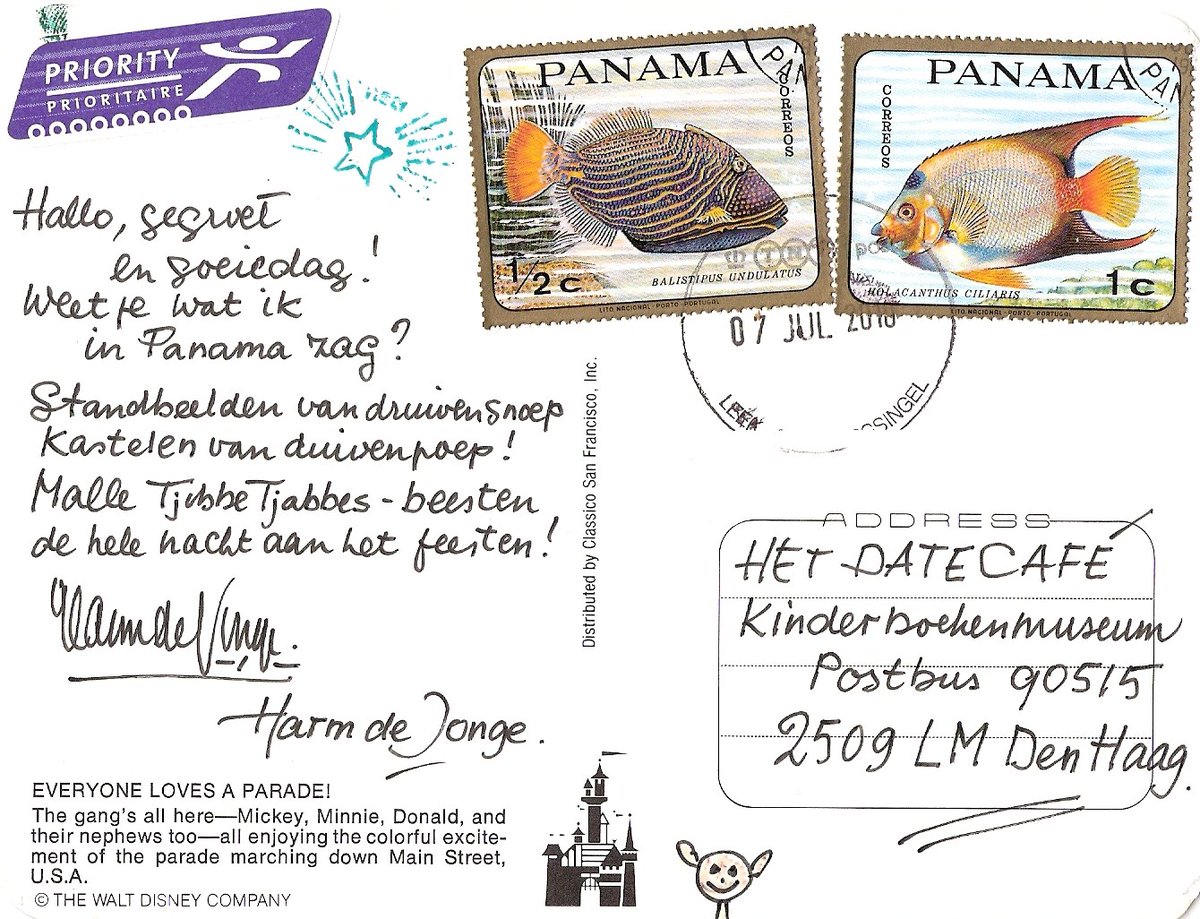 PRIORITY
PRIORITAIRE
Hallo, gegroet
en goeiedag!
Weet je wat ik
in Panama zag?
Standbeelden van druivensnoep
Kastelen van duivenpoep!
Malle Tjibbe Tjabbes-beesten
de hele nacht aan het feesten!
Harm de Jonge.
Harm de Jonge.
EVERYONE LOVES A PARADE!
The gang's all here—Mickey, Minnie, Donald, and
their nephews too—all enjoying the colorful excite-
ment of the parade marching down Main Street,
U.S.A.
© THE WALT DISNEY COMPANY
Distributed by Classico San Francisco, Inc.
PANAMA
CORREOS
BALISTIPUS UNDULATUS
1/2 c
LITO NACIONAL·PORTO·PORTUGAL
PANAMA
CORREOS
HOLACANTHUS CILIARIS
1 c
LITO NACIONAL·PORTO·PORTUGAL
PAN
PAN
07 JUL 2010
ADDRESS
HET DATECAFÉ
Kinderboekenmuseum
Postbus 90515
2509 LM Den Haag.